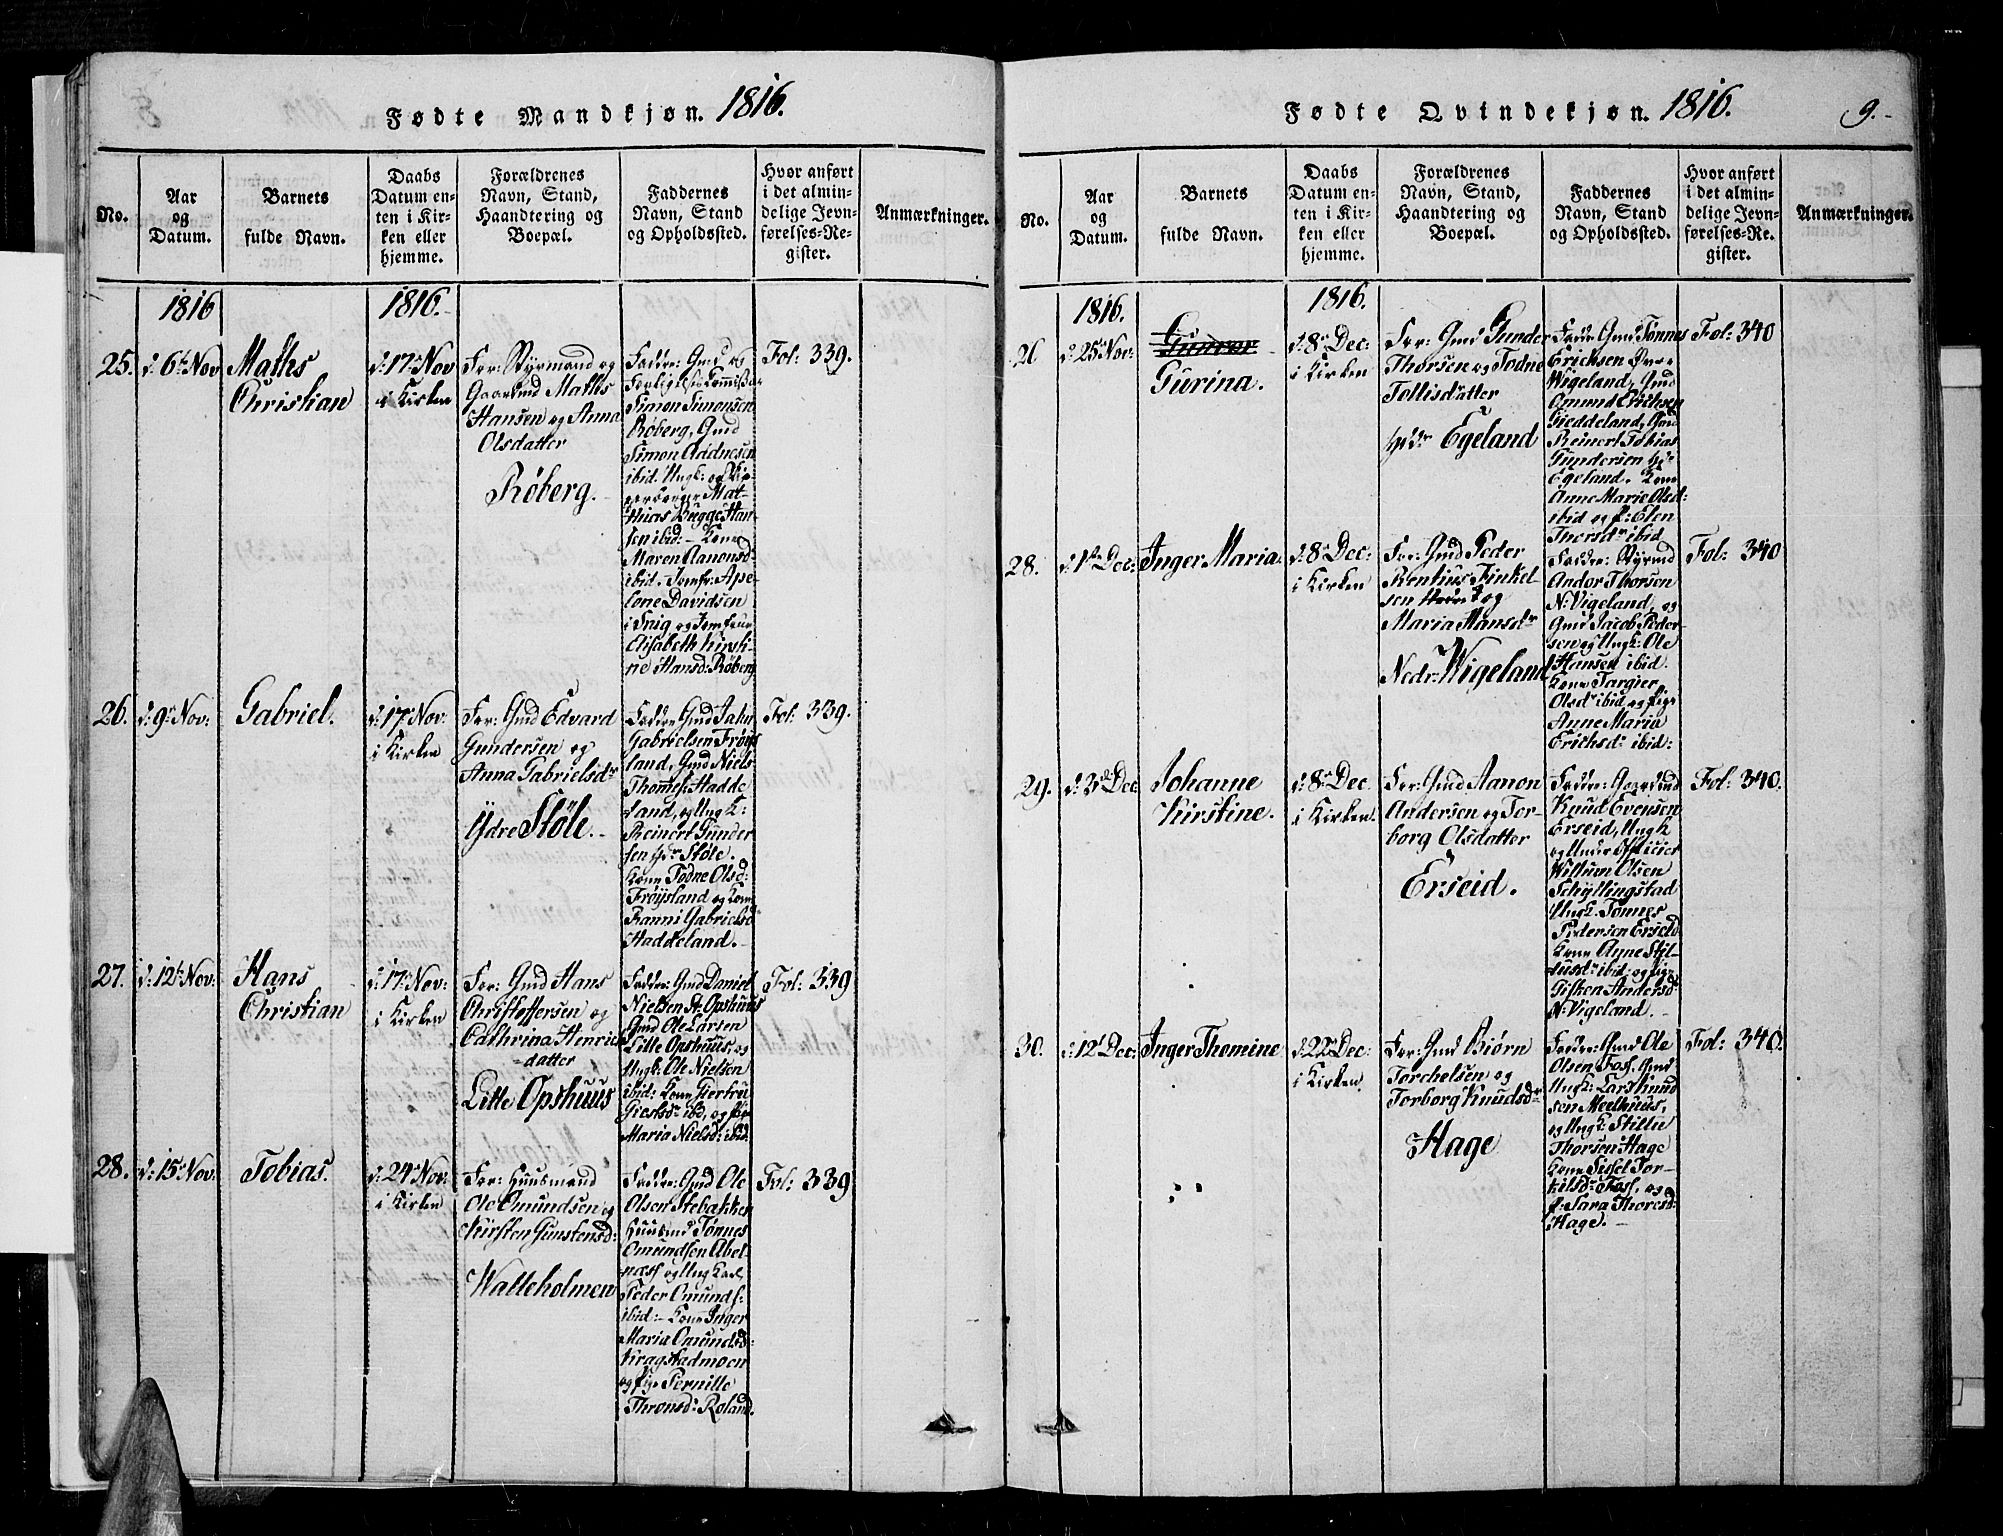 Fødte Mandkjøn. 1816.
No.
Aar
og
Datum.
Barnets
fulde Navn.
Daabs
Datum en-
ten i Kir-
ken eller
hjemme.
Forældrenes
Navn, Stand,
Haandtering og
Boepæl.
Faddernes
Navn, Stand
og Opholdssted.
Hvor anført
i det almin-
delige Jevn-
førelses-Re-
gister.
Anmærkninger.
1816
1816.
25.
d: 6te Nov
Maths
Christian
d: 17de Nov
i Kirken
For: Styrmand og
Gaardmd Maths
Hansen og Anna
Olsdatter
Røberg.
Faddre: Gmd og
Forligelses Commissair
Simon Simonsen
Røberg, Gmd
Simon Addnesen
ibid. Ungk: og
Mat-
thias Bugge Han-
sen ibid:- Kone
Maren Aanonsd:
ibid. Jomfr: Ape-
lone Davidsen
i Svig og Jomfrue
Elisabeth Kirsti-
ne Hansd: Røberg
Fol: 339.
26.
d: 9de Nov:
Gabriel.
d: 17de Nov:
i Kirken
For: Gmd Edvard
Gundersen og
Anna Gabrielsdr
Ydre Støle.
Faddre Gmd Jahn
Gabrielsen Frøys-
land, Gmd Niels
Thomes: Hadde
land, og Ungk:
Reinert Gunder
sen Ydr Støle.
Kone Todne Olsd:
Frøysland og Kone
Ranni Gabrielsd
Haddeland.-
Fol: 339.
27.
d: 12te Nov:
Hans
Christian
d: 17de Nov:
i Kirken
For: Gmd Hans
Christoffersen og
Cathrina Henrics
datter
Litle Opshuus
Faddre: Gmd Daniel
Nielsen St. Opshuus
Gmd Ole Larsen
Litle Opshuus, og
Ungk: Ole Nielsen
ibid: Kone Giertru
ibd, og Pige
Maria Nielsd: ibid.
Fol: 339
28.
d: 15de Nov:
Tobias.
d: 24de Nov:
i Kirken
For: Huusmand
Ole Omundsen og
Kirsten Gunstensd:
Walleholmen
Faddre: Gmd Ole
Olsen Stebakken
Huusmd Tønnes
Omundsen Abel-
næss og Ung Karl
Peder Omunds:
ibid:- Kone Inger
Maria Omundsd:
Kragstadmoen
og Pige Pernille
Thronsd: Roland.
Fol: 339
Fødte Qvindekjøn. 1816.
9.
No.
Aar
og
Datum.
Barnets
fulde Navn.
Daabs
Datum en-
ten i Kir-
ken eller
hjemme.
Forældrenes
Navn, Stand,
Haandtering og
Boepæl.
Faddernes
Navn, Stand
og Opholdssted.
Hvor anført
i det almin-
delige Jevn-
førelses-Re-
gister.
Anmærkninger.
1816.
1816.
d: 25de Nov:
Gurina.
d: 8de Dec:
i Kirken
For: Gmd Gunder
Thorsen og Todne
Tollisdatter
Ydr Egeland
Faddr Gmd Tønnes
Erichsen Øvre
Wigeland, Gmd
Omund Erichsen
Gieddeland, Gmd
Reinert Tobias
Gundersen Ydr
Egeland. Kone
Anne Marie Olsd:
ibid og P: Elen
Thorsdr ibid
Fol: 340
28.
d: 1ste Dec:
Inger Maria.
d: 8de Dec:
i Kirken
For: Gmd Peder
Rentius Finkel-
sen og
Maria Hansdr
Nedr: Wigeland
Faddre: Styrmd
Andor Thorsen
N: Vigeland, og
Gmd Jacob Peder-
sen og Ungk: Ole
Hansen ibid.
Kone Targier
Olsdr ibid og Pige
Anne Maria
Erichsdr ibid:
Fol: 340
29.
d: 3de Dec
Johanne
Kirstine.
d: 8de Dec.
i Kirken.
For: Gmd Aanon
Andersen og Tor-
borg Olsdatter
Erseid.
Faddre: Gaardmd
Knud Evensen
Erseid, Ungk
og Under Officier
Willum Olsen
Schyllingstad
Ungk: Tønnes
Pedersen Erseid
Kone Ibid og Pige
Gisken Andersd:
N: Vigeland.-
Fol: 340.
30.
d: 12te Dec:
Inger Thomine
d: 22de Dec:
i Kirken
For: Gmd Biørn
Torchelsen og
Torborg Knudsdr
Hage
Faddre: Gmd Ole
Olsen Foss, Gmd
Ungk: Lars Knud
sen Meelhuus,
og Ungk: Stille
Thorsen Hage
Kone Sissel Tor-
kilsdr Foss, og
P: Sara Thoresd:
Hage.-
Fol: 340.